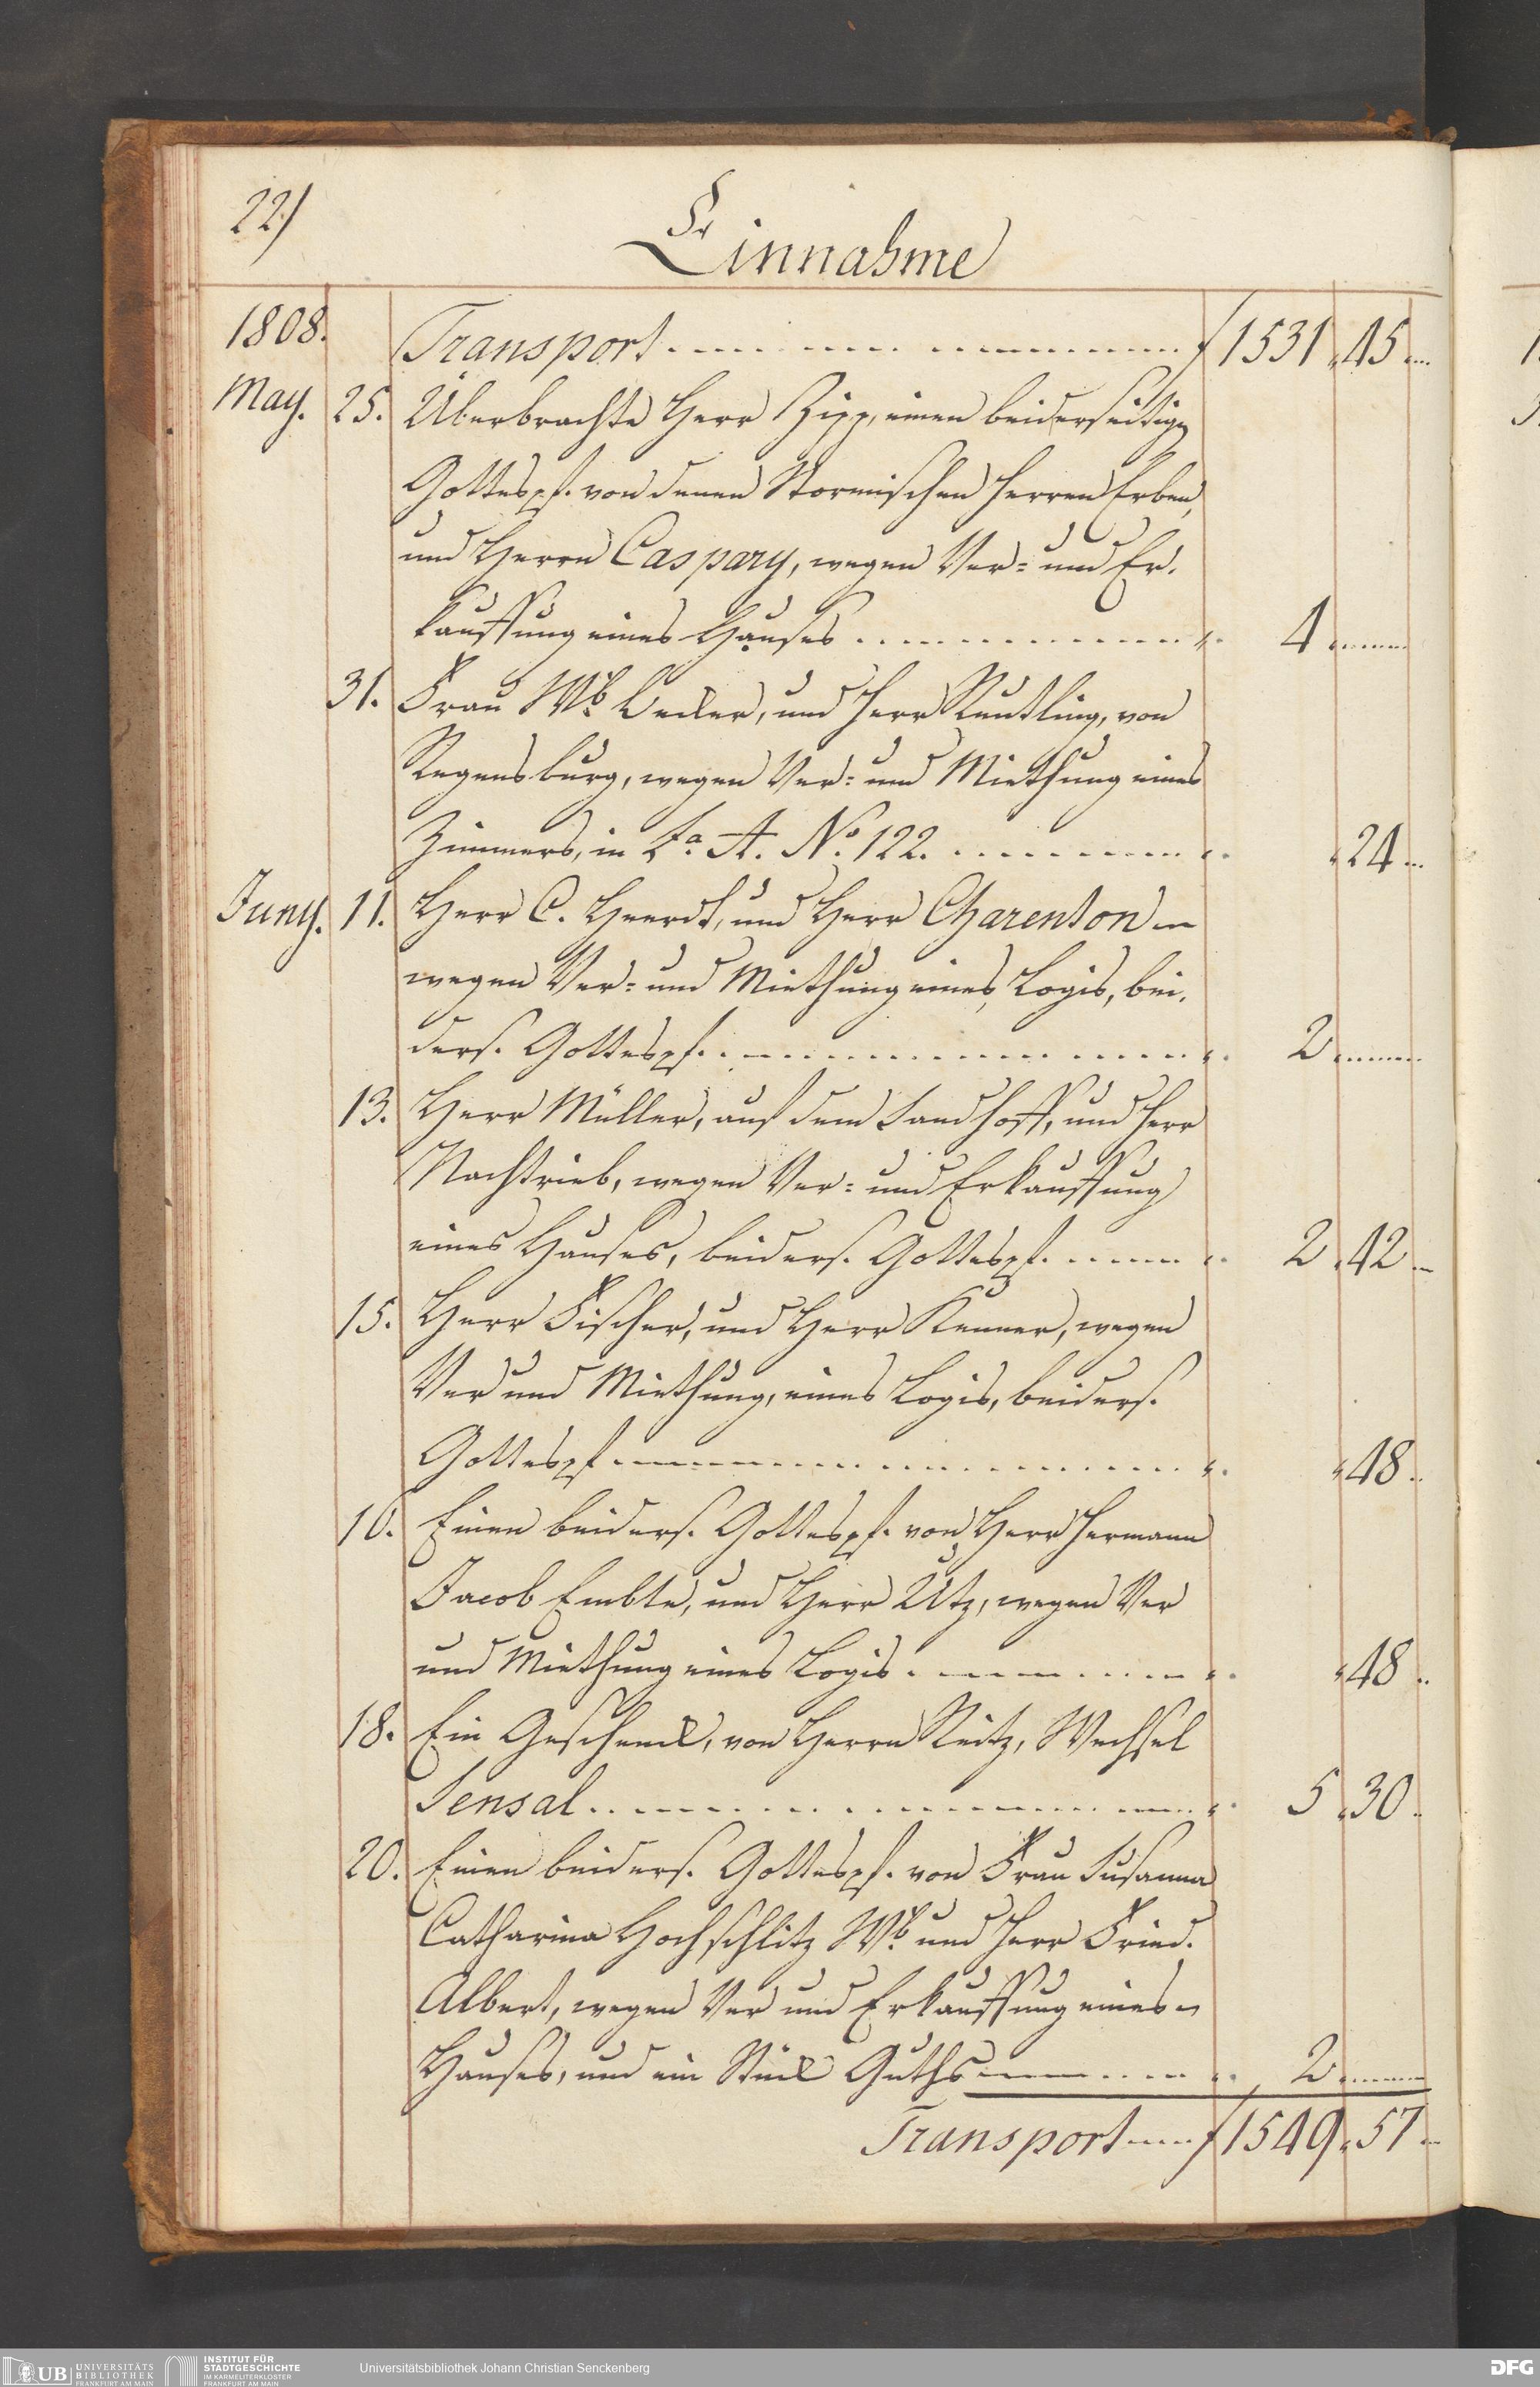 22)
Einnahme
1808. Transport f 1531 „ 45
May. 25. Überbrachte Herr Zipp, einen beiderseitigen
Gottespf. von denen Stormischen Herren Erben,
und Herrn Caspary, wegen Ver= und Er.
kauffung eines Hauses 4
31. Frau Wb. Becker, und Herr Reutling, von
Regensburg, wegen Ver= und Miethung eines
Zimmers, in La. A. No. 122. „ 24
Juny. 11. Herr C. Heerdt, und Herr Charenton
wegen Ver= und Miethung eines Logis, bei.
ders. Gottespf. 2
13. Herr Müller, auf dem Sandhoff, und Herr
Nachtrieb, wegen Ver= und Erkauffung
eines Hauses, beiders. Gottespf. 2 „ 42
15. Herr Fischer, und Herr Kenner, wegen
Ver und Miethung, eines Logis, beiders.
Gottespf „ 48
16. Einen beiders. Gottespf. von Herr Hermann
Jacob Embte, und Herr Utz, wegen Ver
und Miethung eines Logis. „ 48
18. Ein Geschenck, von Herrn Reitz, Wechsel
Sensal 5 „ 30
20. Einen beiders. Gottespf. von Frau Susanna
Catharina Hochschlitz Wb. und Herr Fried.
Albert, wegen Ver und Erkauffung eines
Hauses, und ein Stück Guths 2
Transport f 1549 „ 57
UB UNIVERSITÄTS
BIBLIOTHEK
FRANKFURT AM MAIN
INSTITUT FÜR
STADTGESCHICHTE
IM KARMELITERKLOSTER
FRANKFURT AM MAIN
Universitätsbibliothek Johann Christian Senckenberg
DFG